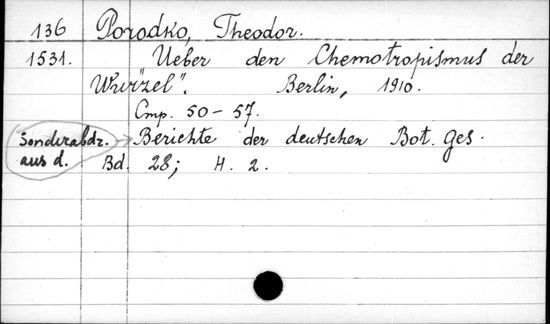 136 Porodko, Theodor.
1531. Ueber den Chemotropismus der
Wurzel". Berlin, 1910.
Стр. 50-57.
Sonderabdr. Berichte der deutschen Bot. Ges.
aus d. Bd. 28; H. 2.